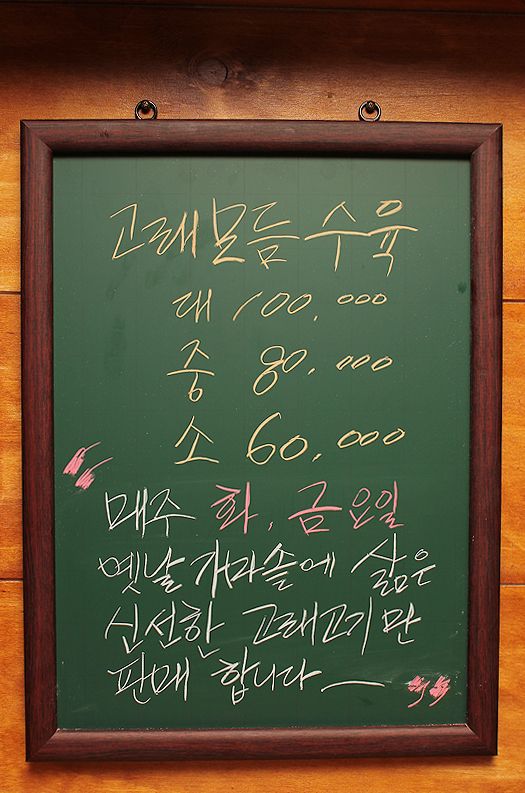 고래모듬수육
대 100.000
중 80.000
소 60.000
"매주 화, 금요일
옛날가마솥에 삶은
신선한 고래고기만
판매 합니다"